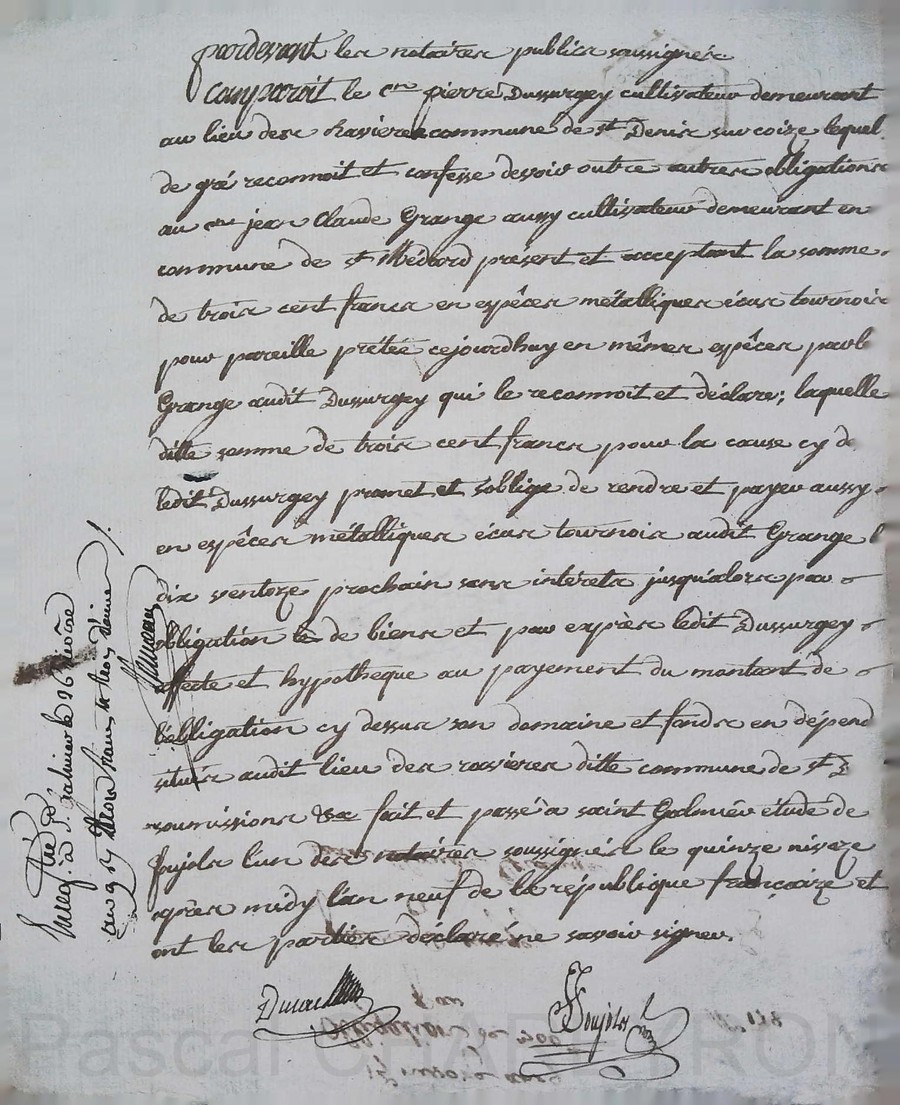 pardevant les notaires publics soussignés
Comparoit le c.en pierre Dussurgey cultivateur demeurant
au lieu des ravieres commune de st Denis sur coize lequel
de gré reconnoit et confesse devoir outre autres obligations
au c.en jean Claude Grange aussy cultivateur demeurant en
commune de st Médard présent et acceptant la somme
de trois cent francs en espêces métalliques écus tournois
pour pareille prêtée cejourdhuy en mêmes espêces par le
Grange audit Dussurgey qui le reconnoit et déclare; laquelle
ditte somme de trois cent francs pour la cause cy de
ledit Dussurgey promet et s'oblige de rendre et payer aussy
en espêces métalliques écus tournois audit Grange l
dix ventoze prochain sans intérêts jusqu'alors par
obligation de biens et par exprès ledit Dussurgey
affecte et hypotheque au payement du montant de
l'obligation cy dessus son domaine et fonds en dépend
situés audit lieu des ravieres ditte commune de st D
soumissions &a fait et passé a saint Galmier étude de
fujols l'un des notaires soussignés le quinze nivoze
après midy l'an neuf de la république françoize et
ont les parties déclaré ne savoir signer.
Enreg. à St Galmier le 26 nivôse
an 9